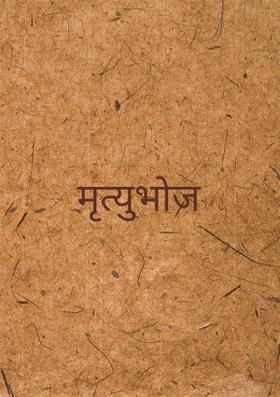 मृत्युभोज